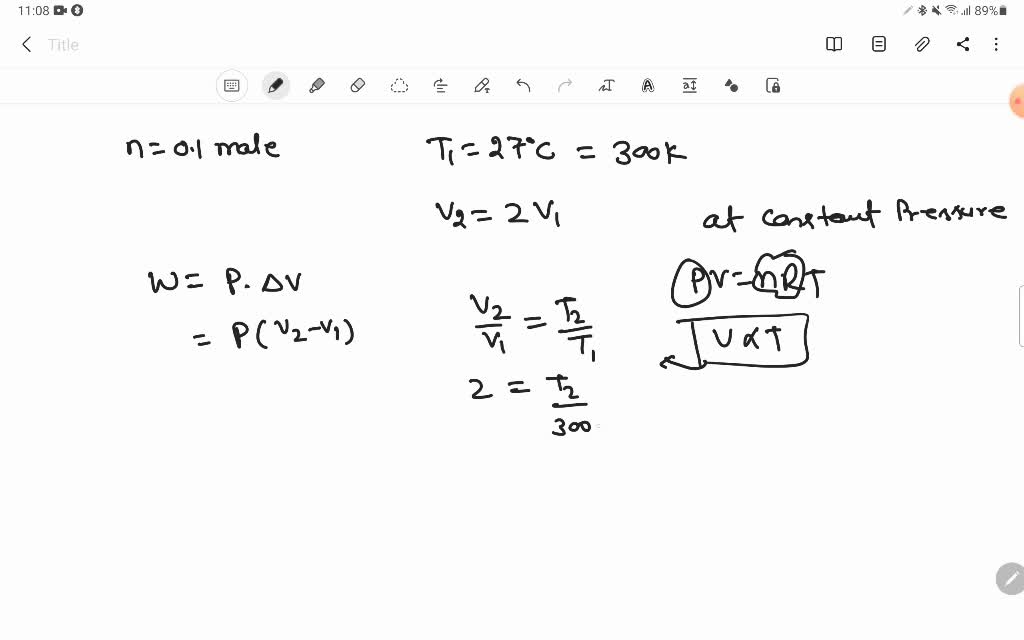 11:08 89%
Title
n = 0.1 mole T₁ = 27°C = 300K
V₂ = 2V₁ at constant Pressure
W = P. ΔV PV = nRT
= P(V₂-V₁) V₂/V₁ = T₂/T₁ V ∝ T
2 = T₂/300